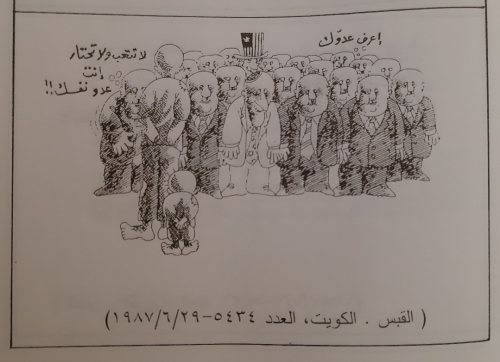 إعرف عدوّك
لا تتعب ولا تحتار
انت
عدو نفسك!!
(القبس . الكويت، العدد ٥٤٣٤-١٩٨٧/٦/٢٩)